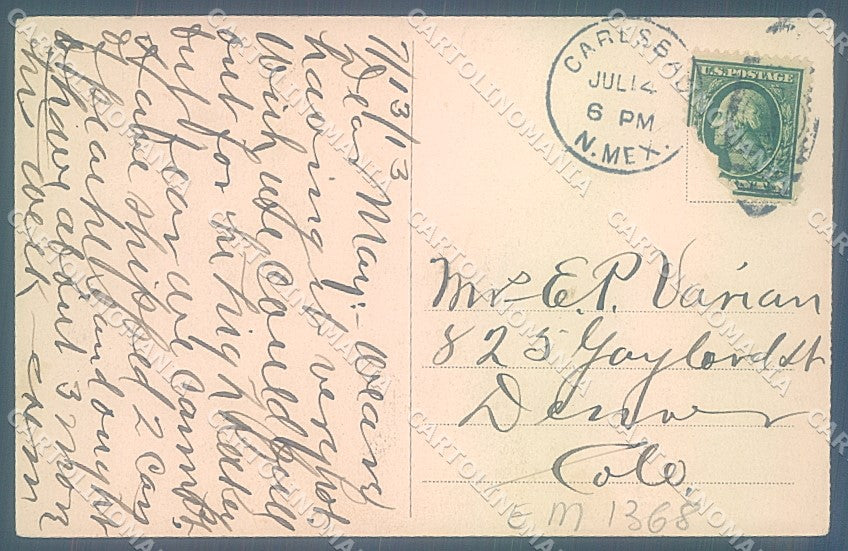 7/13/13
Dear May:- We are
having it very hot.
Wish we could pull
out for the high
but fear we cannot.
Have shipped 2 cars
of Peaches and ought
to have about 3 more
this week
CARLSBAD
JUL 14
6 PM
N. MEX.
U.S. POSTAGE
Mrs E. P. Varian
825 Gaylord St
Denver
Colo.
M 1368
CARTOLINOMANIA